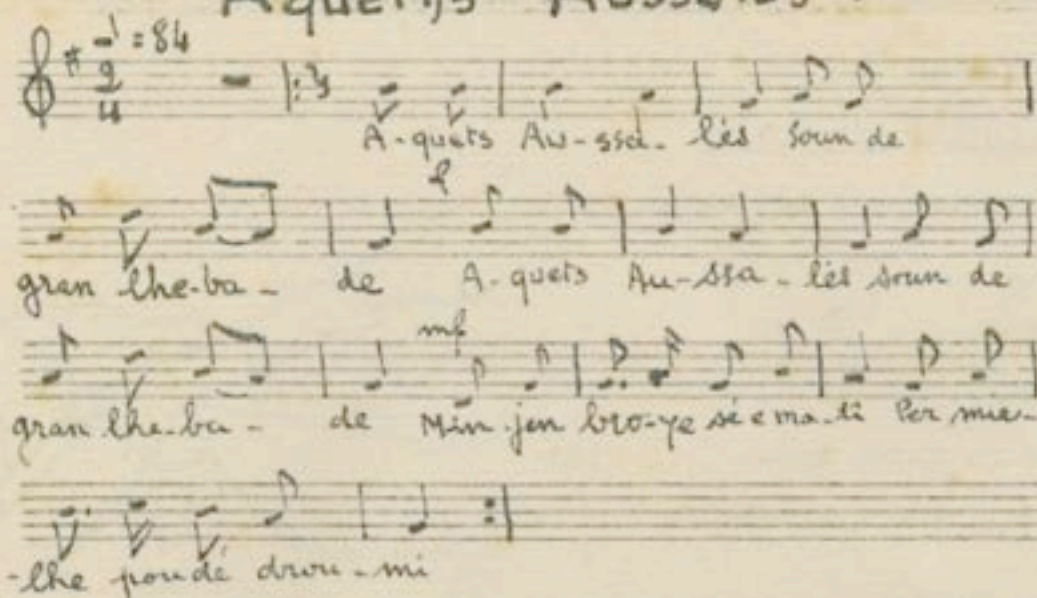 ♩ = 84
2
4
A-quets Au-ssa-lés soun de
f
gran lhe-ba-de A-quets Au-ssa-lés soun de
mf
gran lhe-ba-de Min-jen bro-ye sé e ma-ti Per mie-
-lhe poudé drou-mi